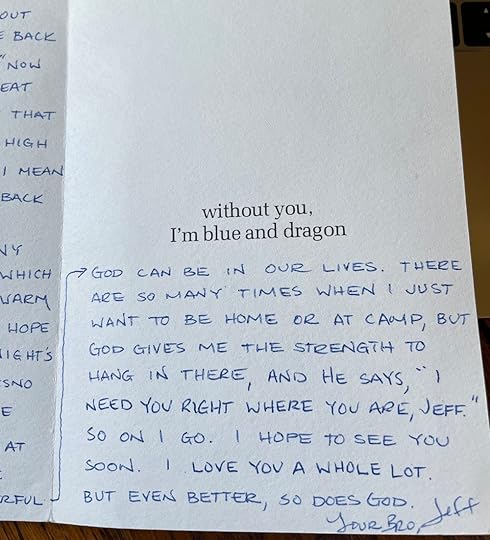 OUT
E BACK
"NOW
EAT
THAT
HIGH
I MEAN
BACK
NY
WHICH
WARM
HOPE
IGHT'S
ESNO
E
AT
E
RFUL
without you,
I'm blue and dragon
GOD CAN BE IN OUR LIVES. THERE
ARE SO MANY TIMES WHEN I JUST
WANT TO BE HOME OR AT CAMP, BUT
GOD GIVES ME THE STRENGTH TO
HANG IN THERE, AND HE SAYS, "I
NEED YOU RIGHT WHERE YOU ARE, JEFF."
SO ON I GO. I HOPE TO SEE YOU
SOON. I LOVE YOU A WHOLE LOT.
BUT EVEN BETTER, SO DOES GOD.
YOUR BRO, Jeff